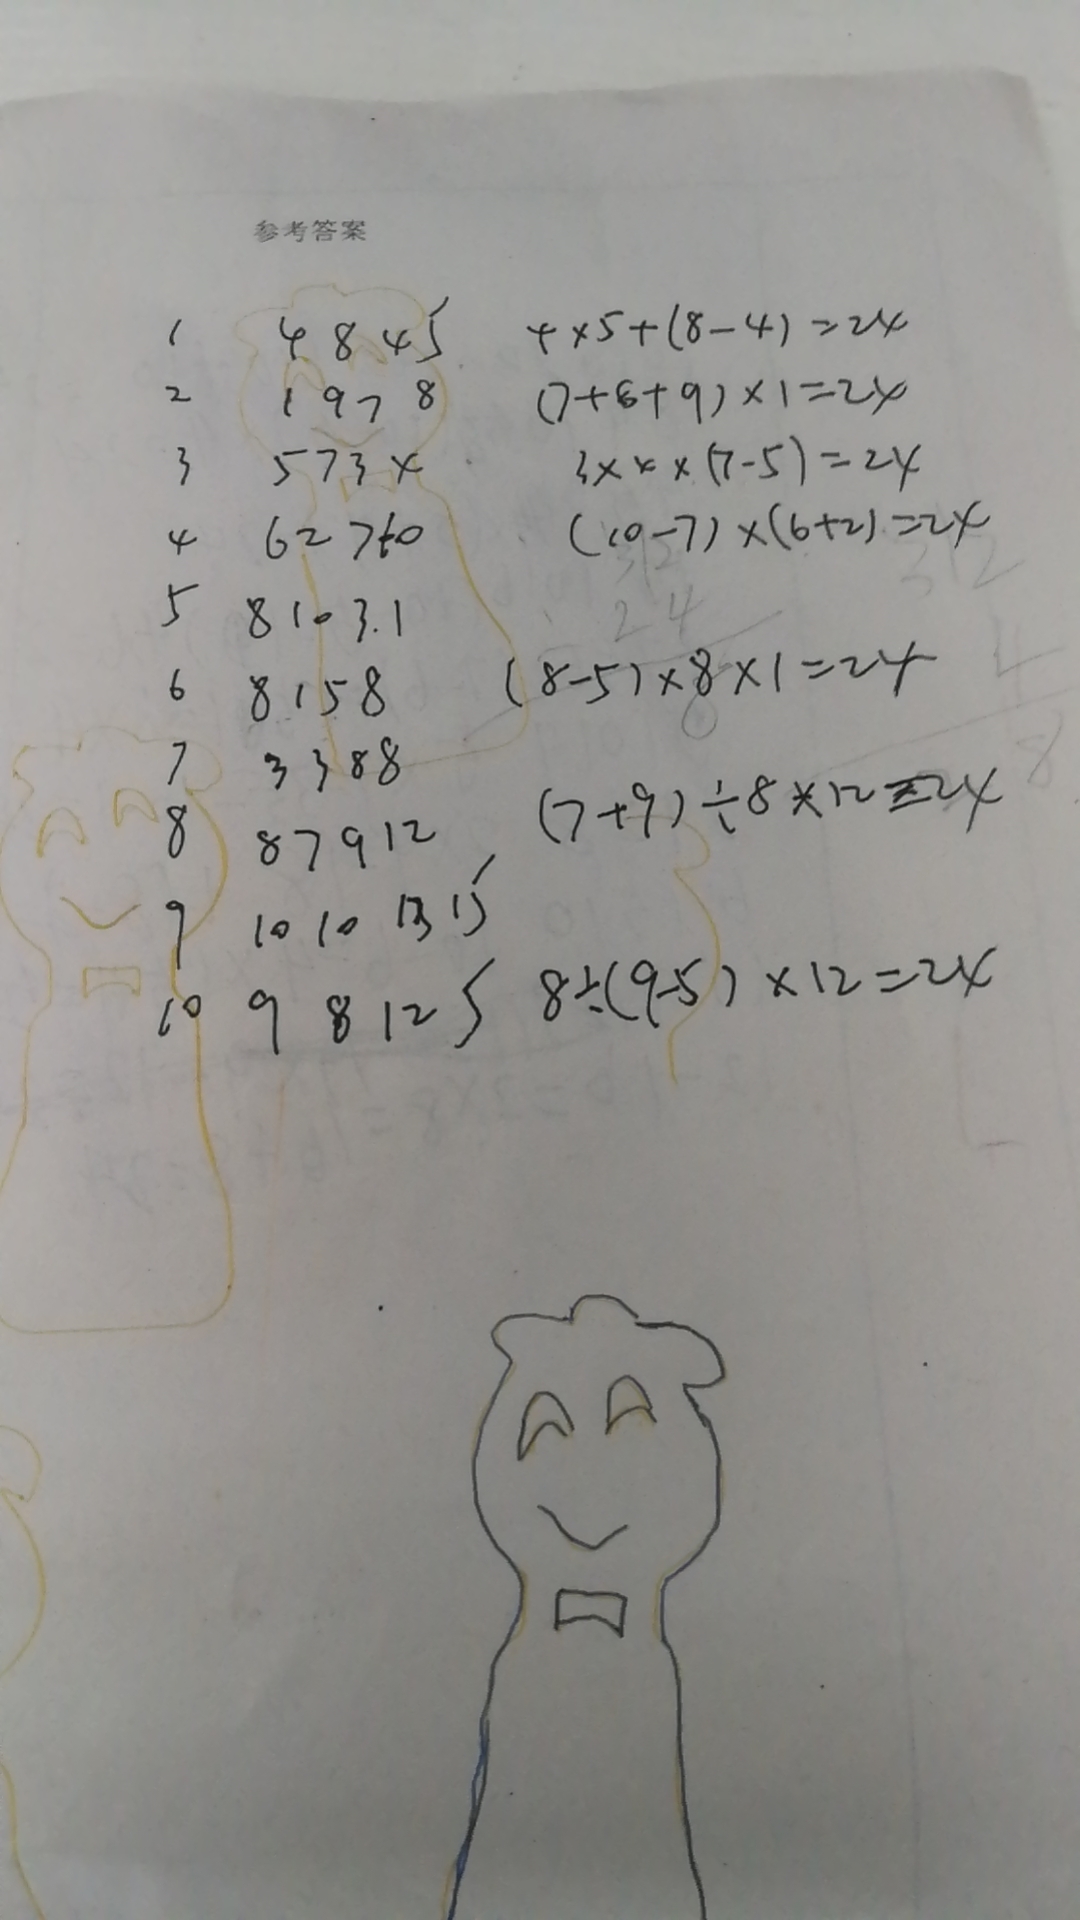 参考答案
1 4 8 4 5 4×5+(8-4)=24
2 1 9 7 8 (7+8+9)×1=24
3 5 7 3 4 3×4×(7-5)=24
4 6 2 7 10 (10-7)×(6+2)=24
5 8 10 3.1
6 8 1 5 8 (8-5)×8×1=24
7 3 3 8 8
8 8 7 9 12 (7+9)÷8×12=24
9 10 10 13 15
10 9 8 12 5 8÷(9-5)×12=24